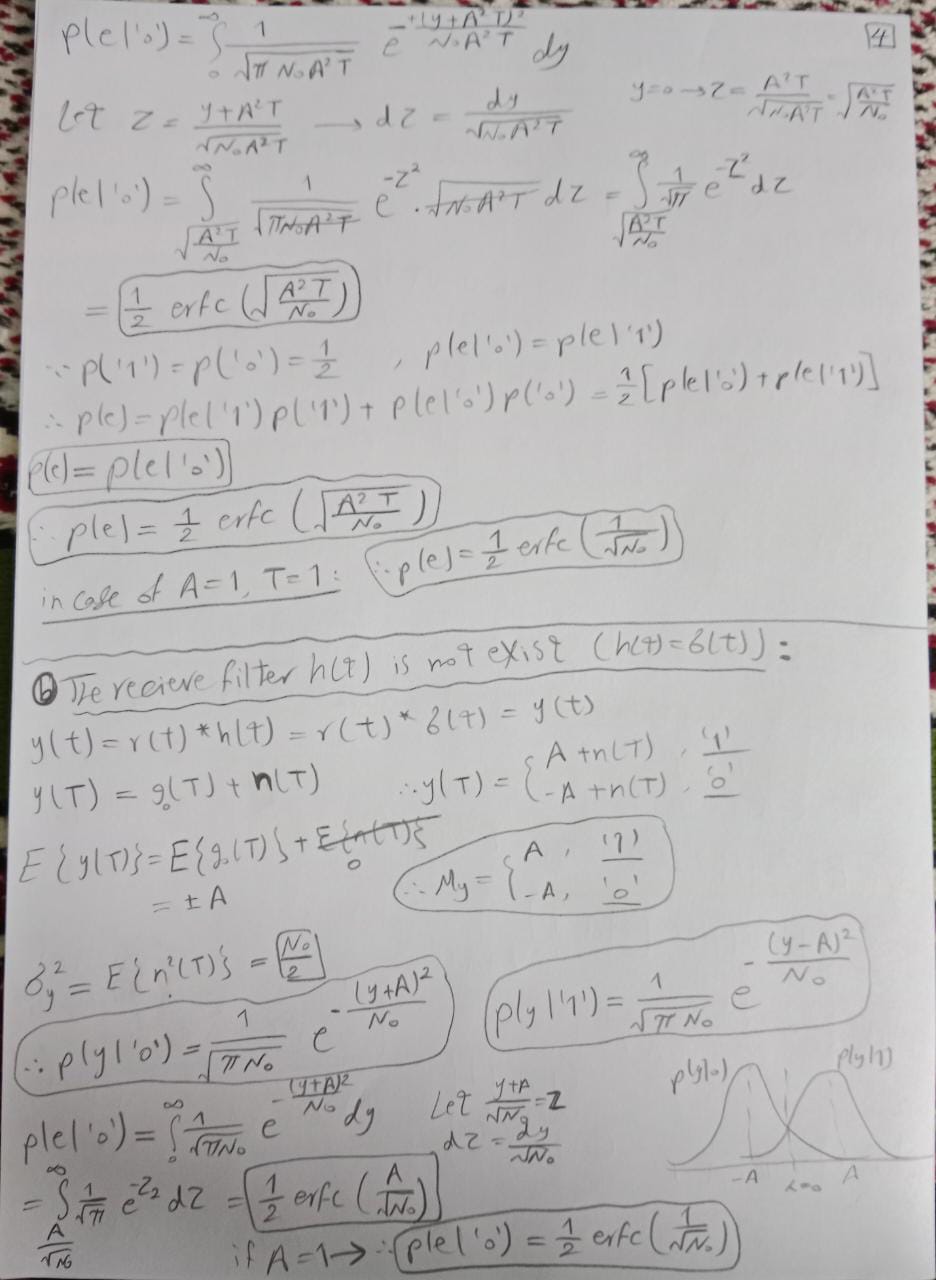 4
p(e|'0') = ∫₀^∞ 1/√(π N₀A²T) e^(-(y+A²T)²/(N₀A²T)) dy
Let z = (y+A²T)/√(N₀A²T) → dz = dy/√(N₀A²T)   y=0 → z = A²T/√(N₀A²T) = √(A²T/N₀)
p(e|'0') = ∫_{√(A²T/N₀)}^∞ 1/√(πN₀A²T) e^(-z²) . √(N₀A²T) dz = ∫_{√(A²T/N₀)}^∞ 1/√π e^(-z²) dz
= 1/2 erfc (√(A²T/N₀))
∵ p('1') = p('0') = 1/2 , p(e|'0') = p(e|'1')
∴ p(e) = p(e|'1') p('1') + p(e|'0') p('0') = 1/2 [p(e|'0') + p(e|'1')]
p(e) = p(e|'0')
∴ p(e) = 1/2 erfc (√(A²T/N₀))
in case of A=1, T=1: ∴ p(e) = 1/2 erfc (1/√N₀)
ⓑ The recieve filter h(t) is not exist (h(t)=δ(t)):
y(t) = r(t) * h(t) = r(t) * δ(t) = y(t)
y(T) = g₀(T) + n(T)   ∴ y(T) = { A + n(T) , '1'
-A + n(T) , '0'
E{y(T)} = E{g₀(T)} + E{n(T)} 0
= ± A
∴ My = { A , '1'
-A , '0'
δy² = E{n²(T)} = N₀/2
∴ p(y|'0') = 1/√(πN₀) e^(-(y+A)²/N₀)
p(y|'1') = 1/√(πN₀) e^(-(y-A)²/N₀)
p(e|'0') = ∫₀^∞ 1/√(πN₀) e^(-(y+A)²/N₀) dy   Let (y+A)/√N₀ = z
dz = dy/√N₀
p(y|0) p(y|1)
-A λ=0 A
= ∫_{A/√N₀}^∞ 1/√π e^(-z²) dz = 1/2 erfc (A/√N₀)
if A=1 → ∴ p(e|'0') = 1/2 erfc (1/√N₀)